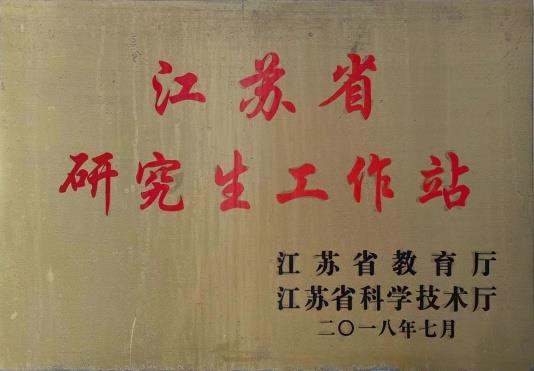 江苏省
研究生工作站
江苏省教育厅
江苏省科学技术厅
二〇一八年七月